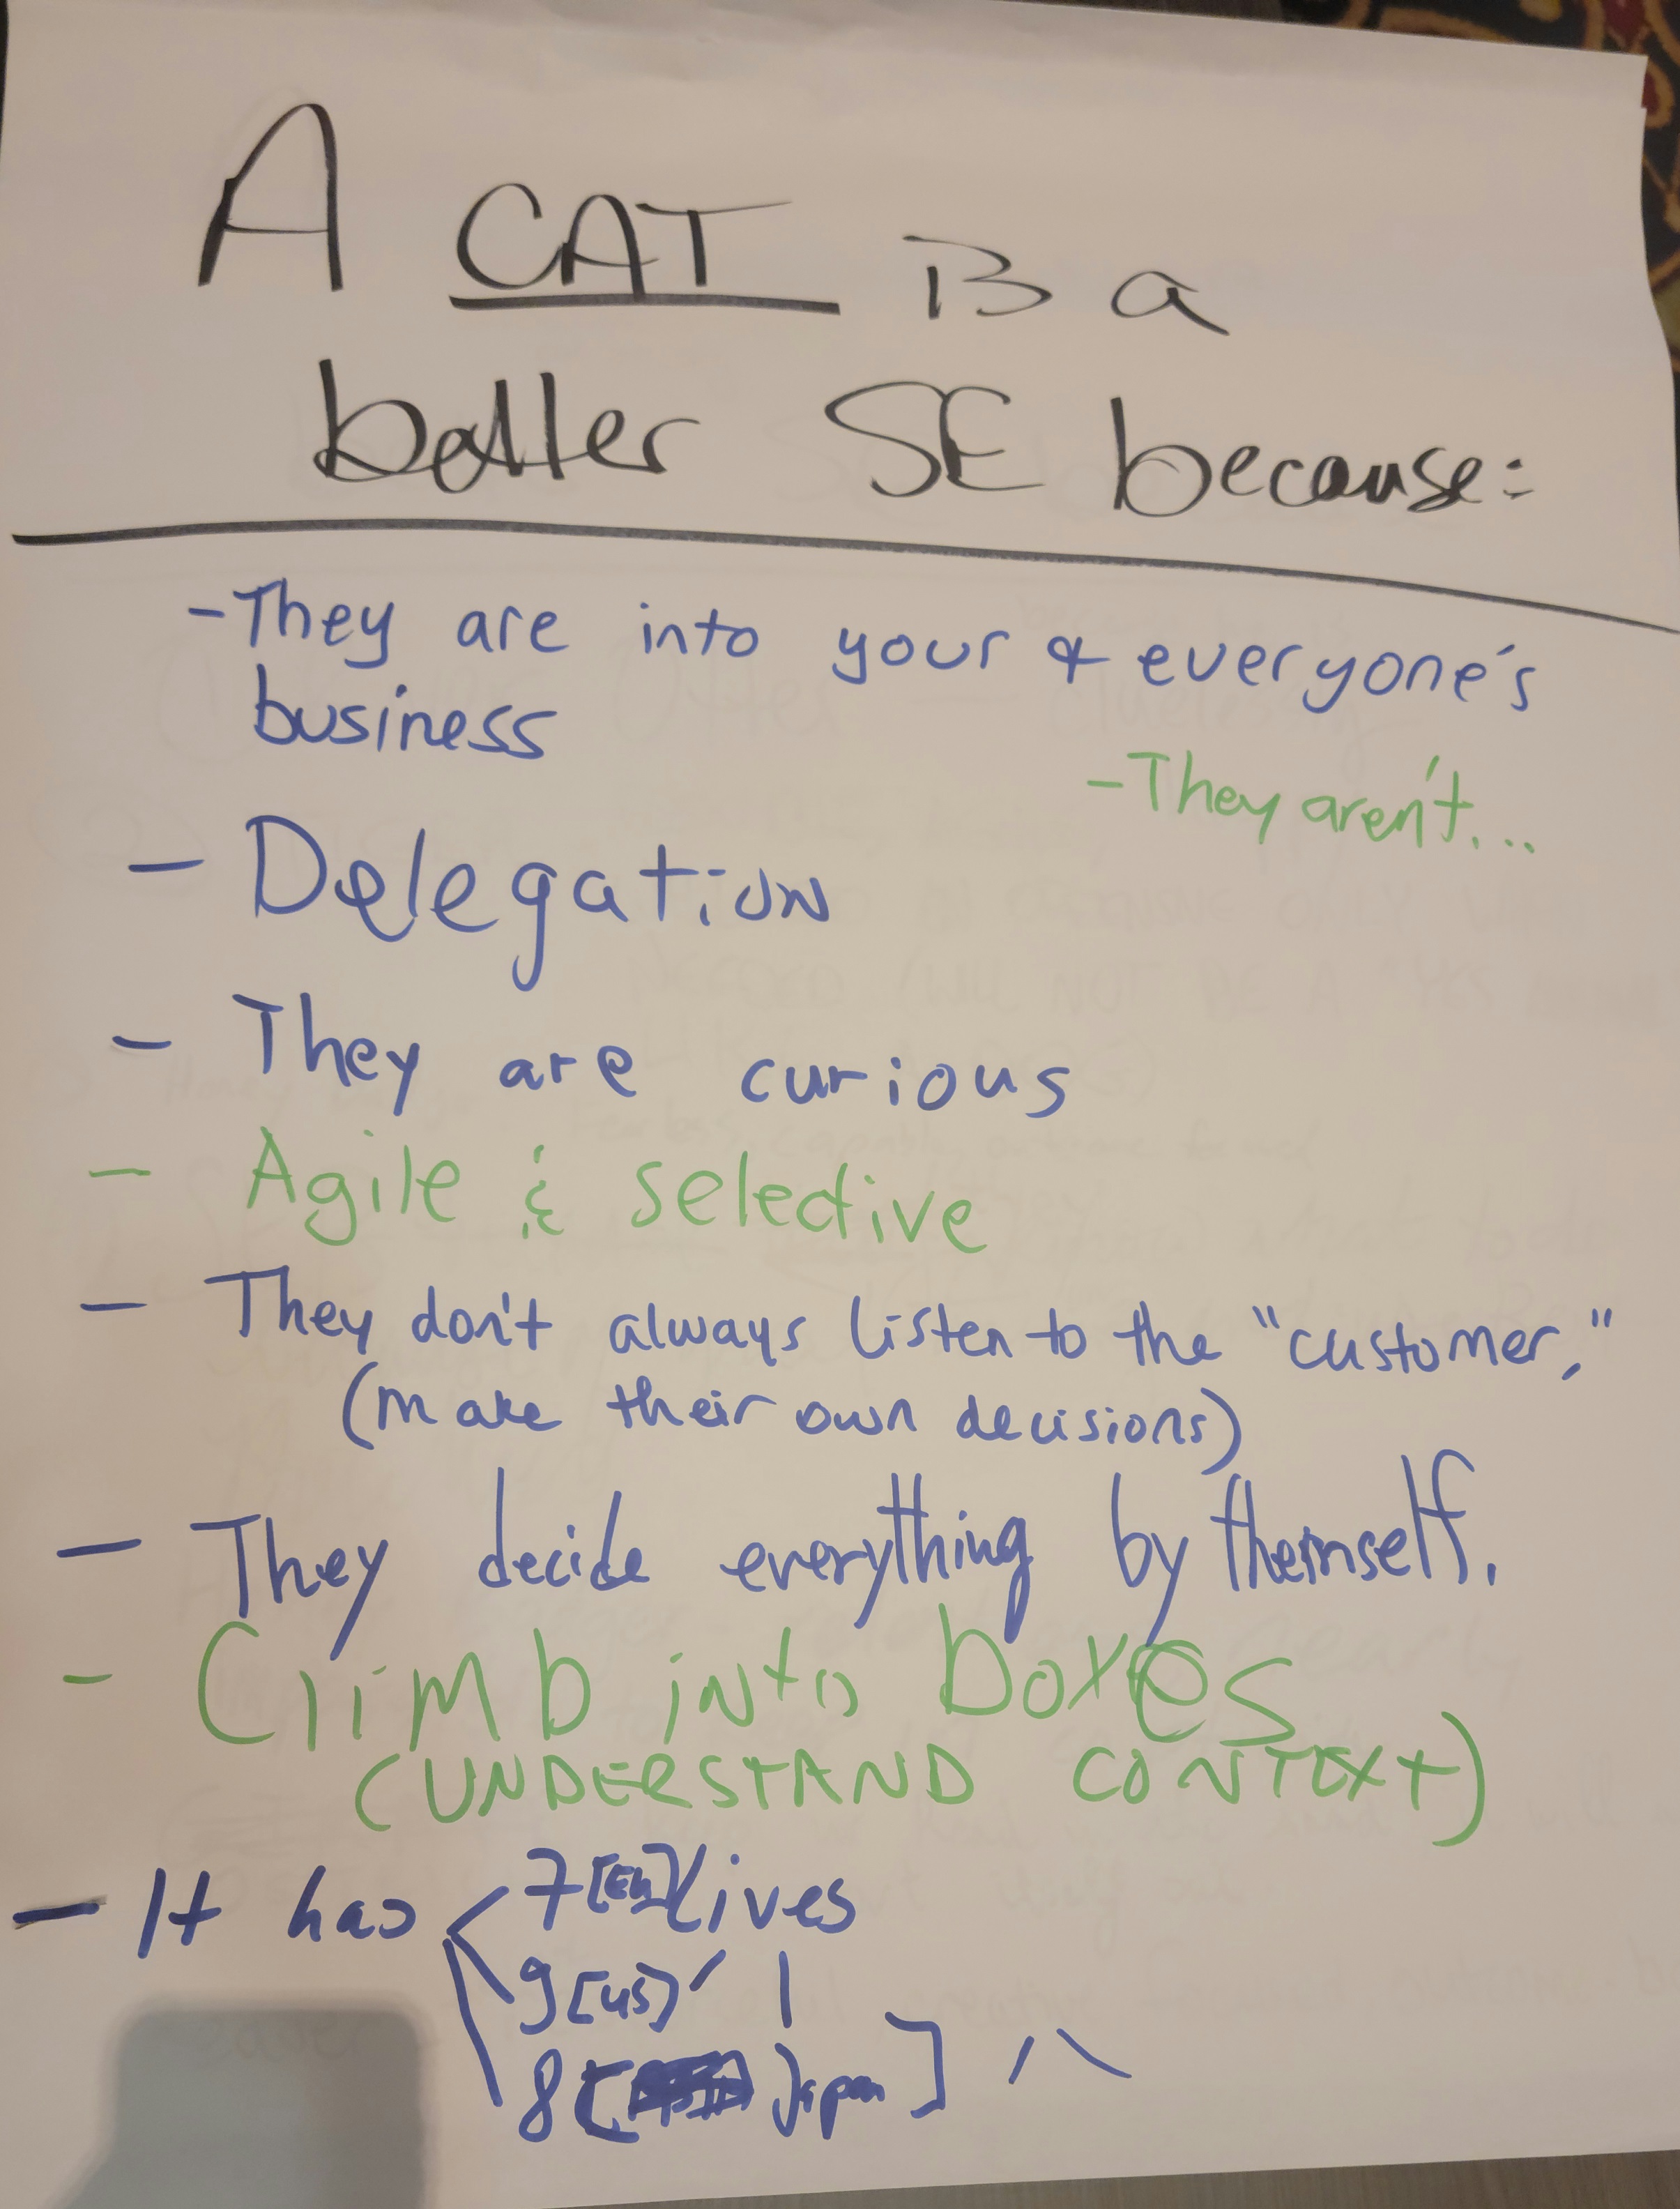 A CAT is a
better SE because:
- They are into your & everyone's
business
- They aren't...
- Delegation
- They are curious
- Agile & selective
- They don't always listen to the "customer,"
(make their own decisions)
- They decide everything by themself.
- Climb into boxes
(UNDERSTAND CONTEXT)
- It has 7 [EU] lives
9 [US] ′ |
8 [Japan] 八